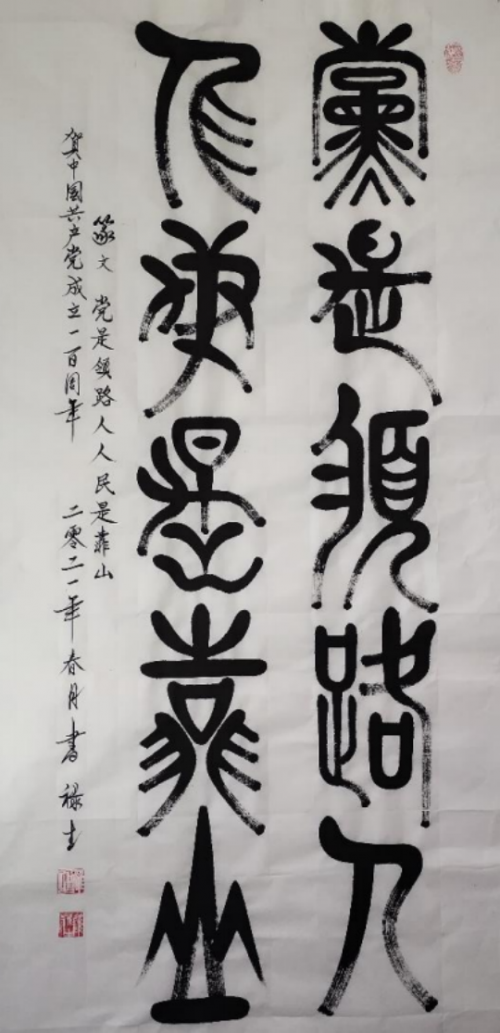 黨是領路人
人民是靠山
篆文 党是领路人人民是靠山
贺中国共产党成立一百周年 二零二一年春月書 禄